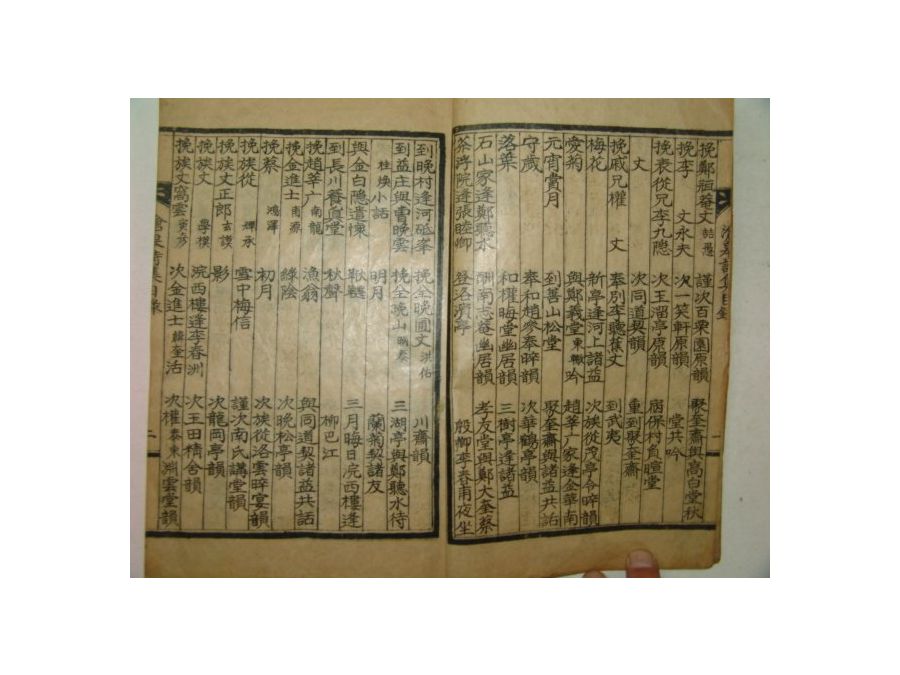 挽鄭瓶菴丈誥愚 謹次百栗園原韻 聚奎齋與高白堂秋
挽李丈永夫 次一笑軒原韻 堂共吟
挽表從兄李九隐 次王溜亭原韻 宿保村負暄堂
丈 次同道契韻 重到聚奎齋
挽戚兄權丈 奉別李聽蕉丈 到武夷
梅花 新亭逢河上諸益 次族從茂亭令晬韻
愛菊 與鄭義堂東轍吟 趙華广家逢金華南
元宵賞月 到善山松堂 聚奎齋與諸益共話
守歲 奉和趙參奉晬韻 次華鶴亭韻
落葉 和權晦堂幽居韻 三樹亭逢諸益
石山家逢鄭聽水 酬南志菴幽居韻 孝友堂與鄭大奎蔡
茶院逢張睦卿 登名亭 殷卿李春甫夜坐
到晚村逢河砥峯 挽全晚圃丈洪佑 川齋韻
到益庄與曺晚雲 挽全晚山秦 三湖亭與鄭聽水待
桂煥小話 明月 蘭菊契諸友
與金白隐遣悚 鞦韆 三月晦日浣西樓逢
到長川養真堂 秋聲 柳巴江
挽趙華广南龍 漁翁 與同道契諸益共話
挽金進士南源 綠陰 次晚松亭韻
挽蔡鴻澤 初月 次族從洛雲晬宴韻
挽族從輝承 雪中梅信 謹次南氏講堂韻
挽族丈正郎玄謨 影 次龍岡亭韻
挽族丈學模 浣西樓逢李春洲 次王田精舍韻
挽族丈窩雲寅彦 次金進士奎活 次權泰東淵雲堂韻
詩集目錄
一
二